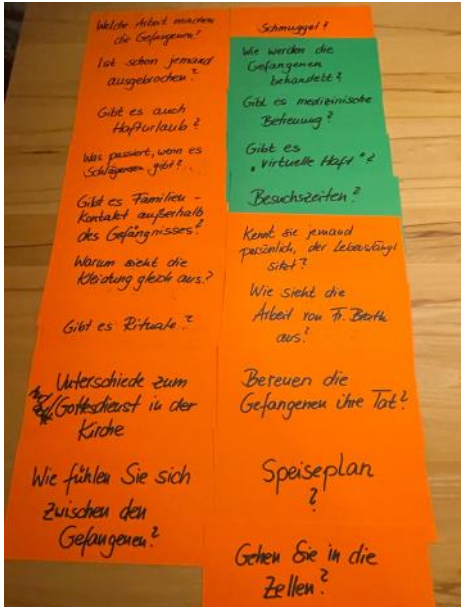 Welche Arbeit machen
die Gefangenen?
Ist schon jemand
ausgebrochen?
Gibt es auch
Hafturlaub?
Was passiert, wenn es
Schlägereien gibt?
Gibt es Familien-
kontakt außerhalb
des Gefängnisses?
Warum sieht die
Kleidung gleich aus?
Gibt es Rituale?
Unterschiede zum
Gottesdienst in der
Kirche
Wie fühlen Sie sich
zwischen den
Gefangenen?
Schmuggel?
Wie werden die
Gefangenen
behandelt?
Gibt es medizinische
Betreuung?
Gibt es
"virtuelle Haft"?
Besuchszeiten?
Kennt sie jemand
persönlich, der Lebenslängl
sitzt?
Wie sieht die
Arbeit von Fr.
aus?
Bereuen die
Gefangenen ihre Tat?
Speiseplan
?
Gehen Sie in die
Zellen?